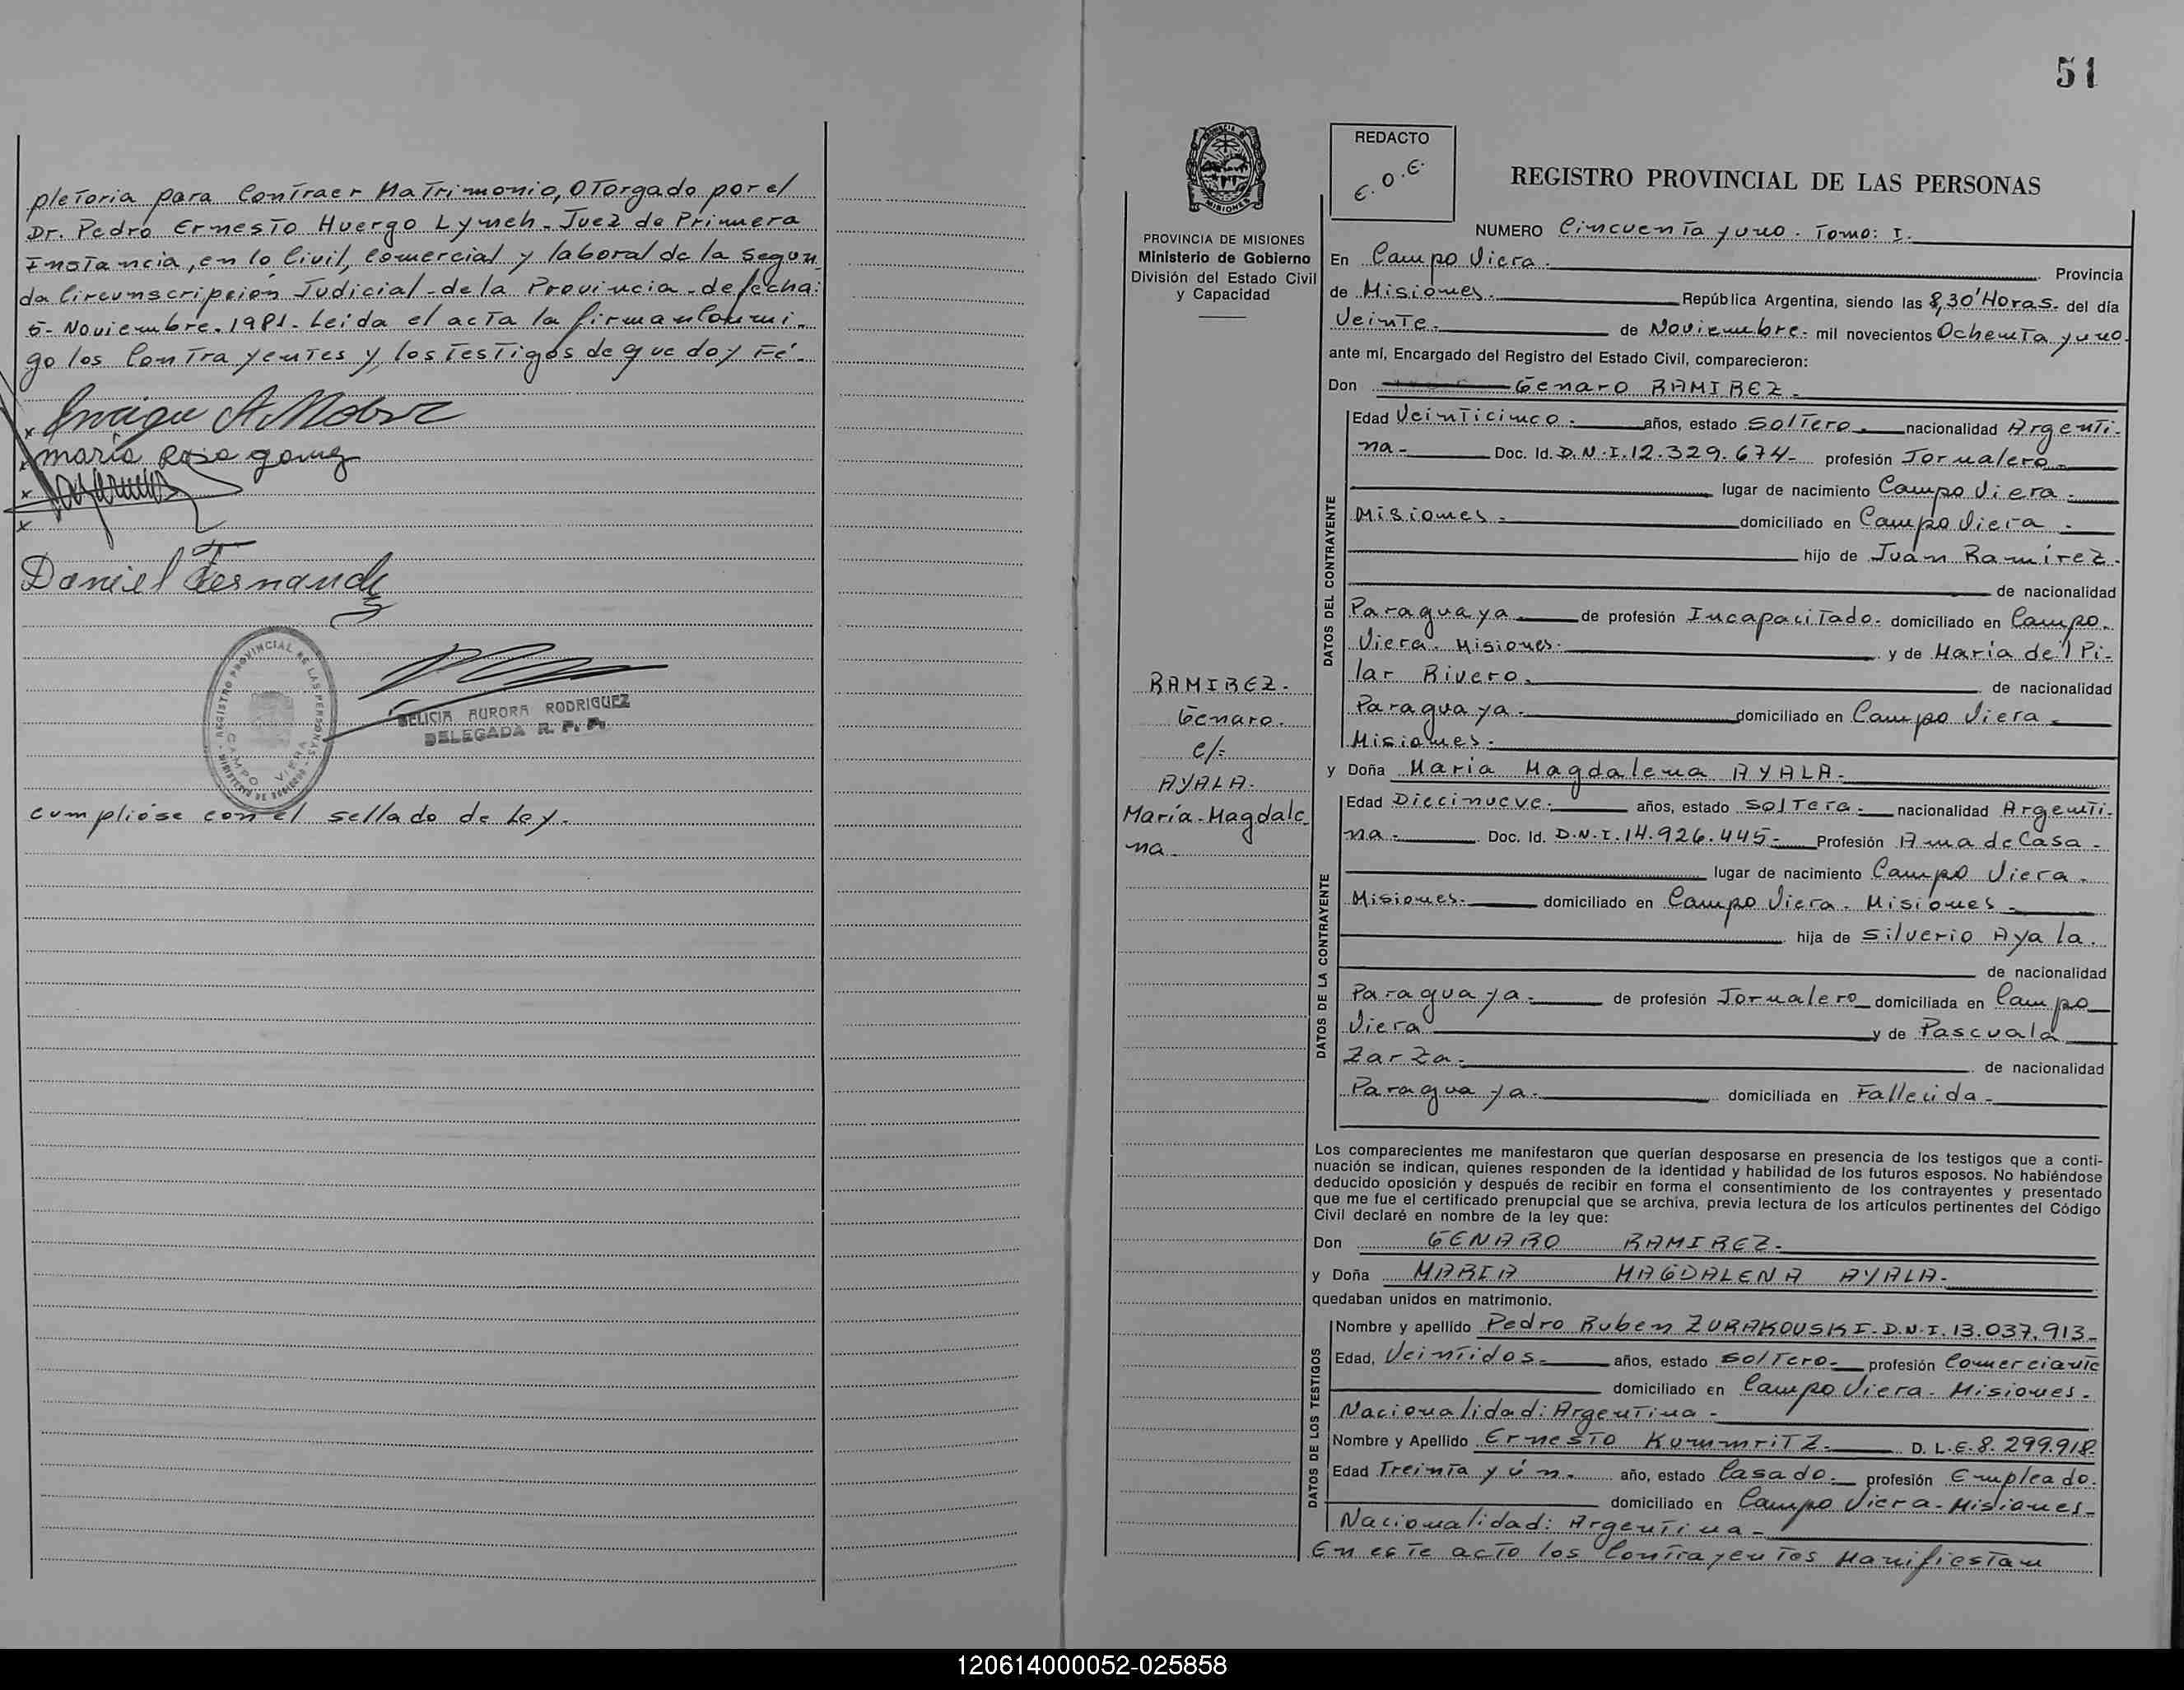 pletoria para Contraer Matrimonio, Otorgado por el
Dr. Pedro Ernesto Huergo Lynch. Juez de Primera
Instancia, en lo Civil, Comercial y laboral de la Segun
da Circunscripción Judicial de la Provincia - de fecha:
5- Noviembre. 1981. Leida el acta la firman conmi-
go los Contrayentes y los testigos de que doy Fé.
x
maría Rosa gomez
x
x
Daniel Fernande
REGISTRO PROVINCIAL DE LAS PERSONAS
CAMPO VIERA
FELICIA AURORA RODRIGUEZ
DELEGADA R. P. P.
cumplióse con el sellado de Ley.
51
PROVINCIA DE MISIONES
Ministerio de Gobierno
División del Estado Civil
y Capacidad
RAMIREZ.
Genaro.
c/:
AYALA.
María-Magdale
na
REDACTO
E.O.E.
REGISTRO PROVINCIAL DE LAS PERSONAS
NUMERO Cincuenta y uno. Tomo: I.
En Campo Viera. Provincia
de Misiones. República Argentina, siendo las 8,30' Horas. del día
Veinte. de Noviembre. mil novecientos Ochenta y uno.
ante mí, Encargado del Registro del Estado Civil, comparecieron:
Don Genaro RAMIREZ.
DATOS DEL CONTRAYENTE
Edad Veinticinco. años, estado Soltero. nacionalidad Argenti-
na- Doc. Id. D.N.I.12.329.674- profesión Jornalero.
lugar de nacimiento Campo Viera.
Misiones. domiciliado en Campo Viera.
hijo de Juan Ramírez.
de nacionalidad
Paraguaya. de profesión Incapacitado. domiciliado en Campo.
Viera. Misiones. y de María de'l Pi-
lar Rivero. de nacionalidad
Paraguaya. domiciliado en Campo Viera.
Misiones.
y Doña Maria Magdalena AYALA.
DATOS DE LA CONTRAYENTE
Edad Diecinueve. años, estado Soltera. nacionalidad Argenti-
na- Doc. Id. D.N.I.14.926.445- Profesión Ama de Casa-
lugar de nacimiento Campo Viera.
Misiones. domiciliado en Campo Viera. Misiones.
hija de Silverio Ayala.
de nacionalidad
Paraguaya. de profesión Jornalero domiciliada en Campo
Viera y de Pascuala
Zarza. de nacionalidad
Paraguaya. domiciliada en Fallecida.
Los comparecientes me manifestaron que querían desposarse en presencia de los testigos que a conti-
nuación se indican, quienes responden de la identidad y habilidad de los futuros esposos. No habiéndose
deducido oposición y después de recibir en forma el consentimiento de los contrayentes y presentado
que me fue el certificado prenupcial que se archiva, previa lectura de los artículos pertinentes del Código
Civil declaré en nombre de la ley que:
Don GENARO RAMIREZ.
y Doña MARIA MAGDALENA AYALA.
quedaban unidos en matrimonio.
DATOS DE LOS TESTIGOS
Nombre y apellido Pedro Ruben ZURAKOUSKI. D.N.I. 13.037.913-
Edad, Veintidos. años, estado Soltero. profesión Comerciante
domiciliado en Campo Viera. Misiones.
Nacionalidad: Argentina-
Nombre y Apellido Ernesto Kummritz. D. L.E. 8.299.918.
Edad Treinta y ún. año, estado Casado. profesión Empleado.
domiciliado en Campo Viera. Misiones.
Nacionalidad: Argentina-
En este acto los Contrayentes Manifiestan
120614000052-025858